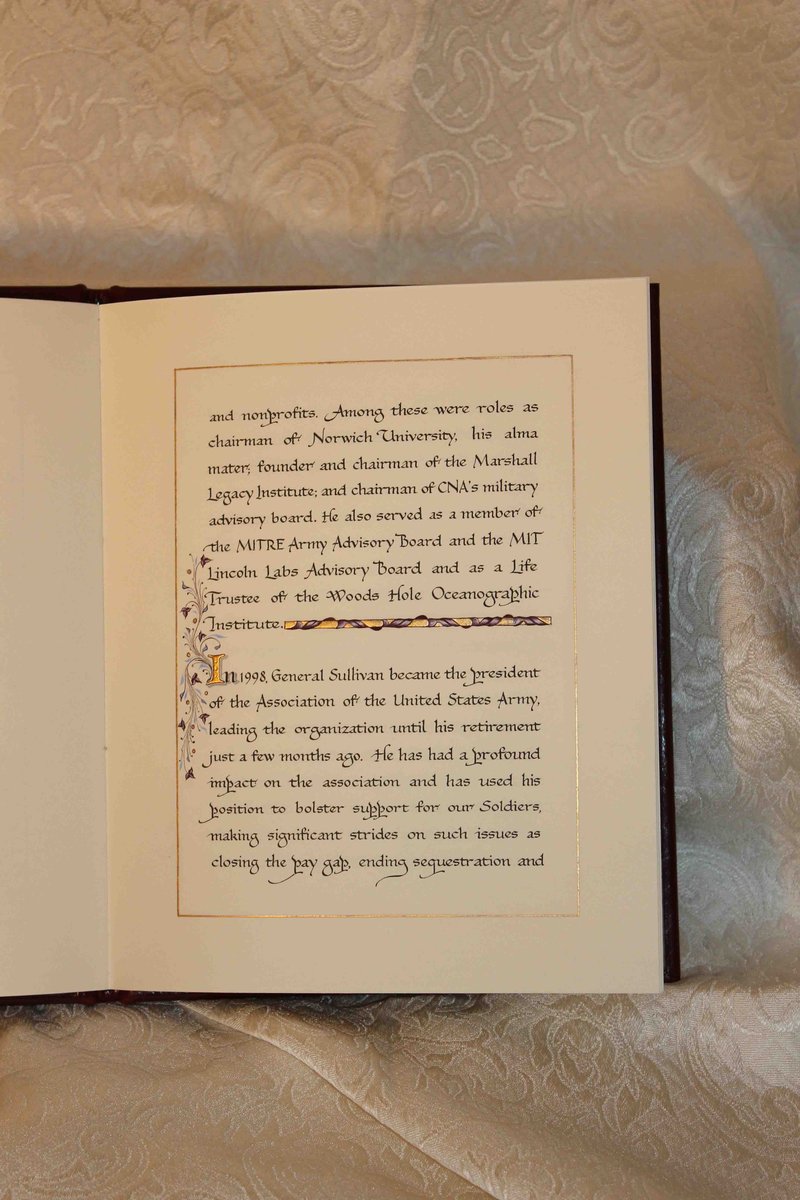 and nonprofits. Among these were roles as
chairman of Norwich University, his alma
mater; founder and chairman of the Marshall
Legacy Institute; and chairman of CNA's military
advisory board. He also served as a member of
the MITRE Army Advisory Board and the MIT
Lincoln Labs Advisory Board and as a Life
Trustee of the Woods Hole Oceanographic
Institute.
In 1998, General Sullivan became the president
of the Association of the United States Army,
leading the organization until his retirement
just a few months ago. He has had a profound
impact on the association and has used his
position to bolster support for our Soldiers,
making significant strides on such issues as
closing the pay gap, ending sequestration and